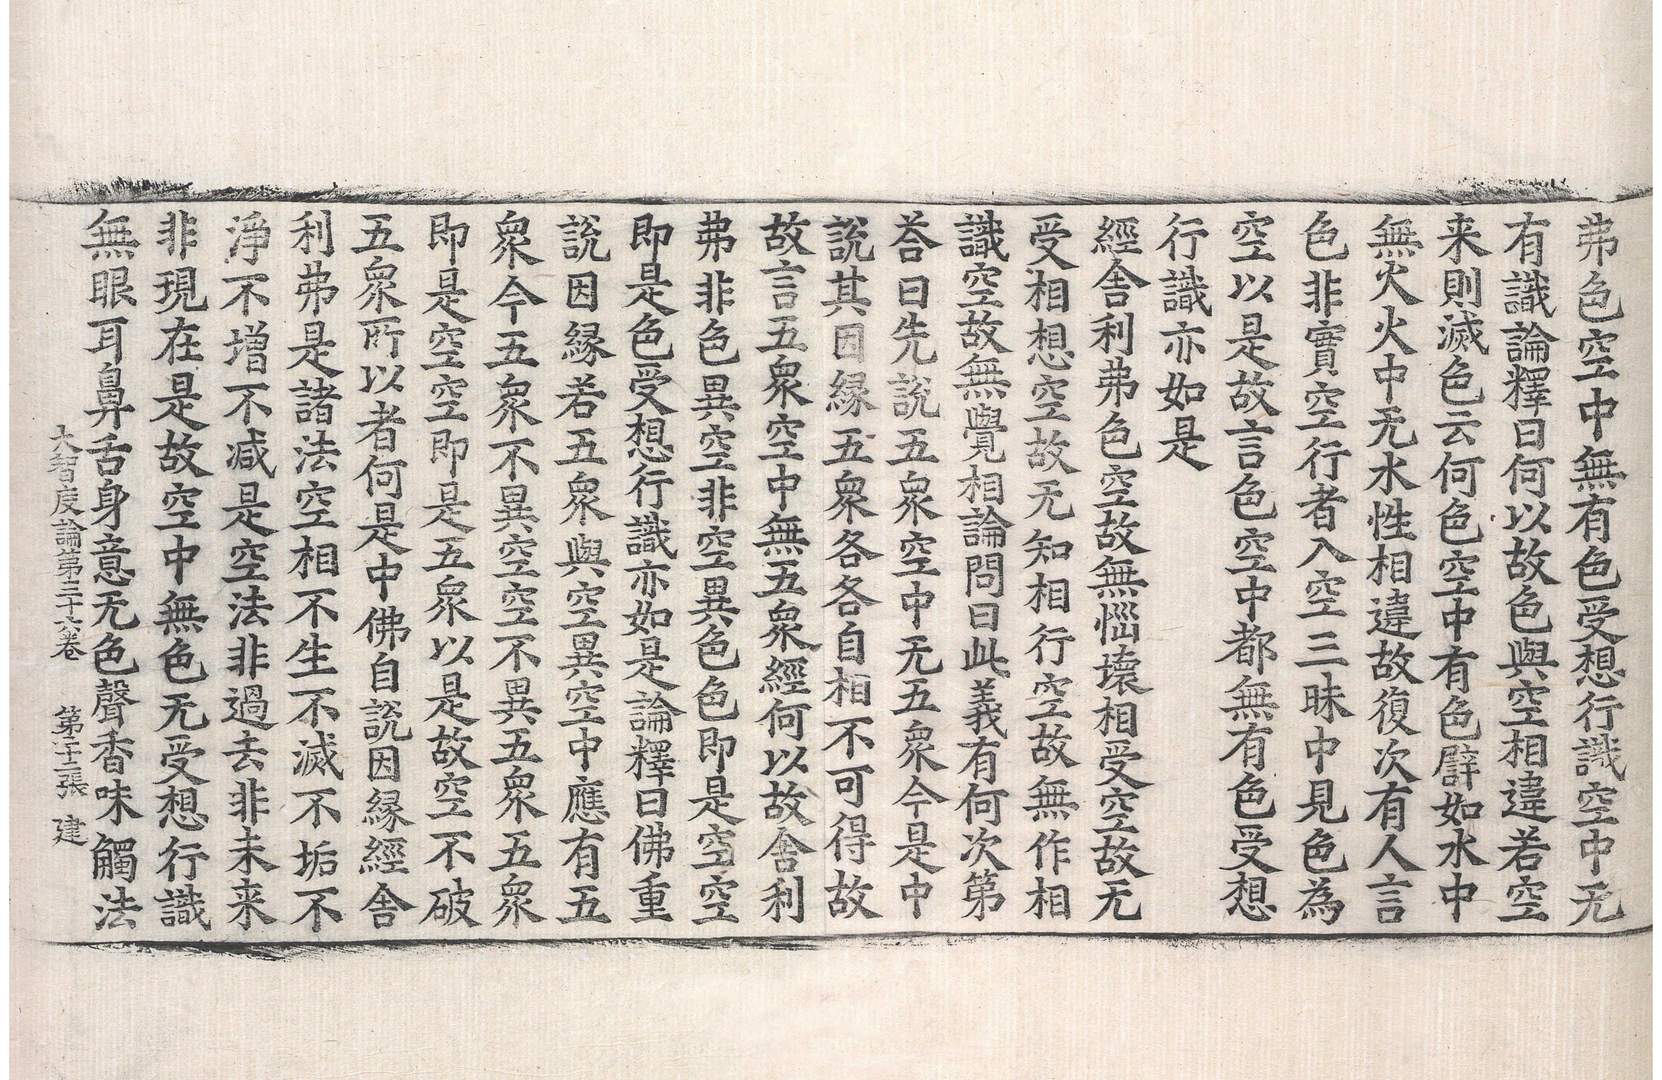 弗色空中無有色受想行識空中无
有識論釋曰何以故色與空相違若空
来則滅色云何色空中有色譬如水中
無火火中无水性相違故復次有人言
色非實空行者入空三昧中見色為
空以是故言色空中都無有色受想
行識亦如是
經舍利弗色空故無惱壞相受空故无
受相想空故无知相行空故無作相
識空故無覺相論問曰此義有何次第
荅曰先說五衆空中无五衆今是中
說其因緣五衆各各自相不可得故
故言五衆空中無五衆經何以故舍利
弗非色異空非空異色色即是空空
即是色受想行識亦如是論釋曰佛重
說因緣若五衆與空異空中應有五
衆今五衆不異空空不異五衆五衆
即是空空即是五衆以是故空不破
五衆所以者何是中佛自說因緣經舍
利弗是諸法空相不生不滅不垢不
淨不增不减是空法非過去非未来
非現在是故空中無色无受想行識
無眼耳鼻舌身意无色聲香味觸法
大智度論第三十六卷 第十二張 建